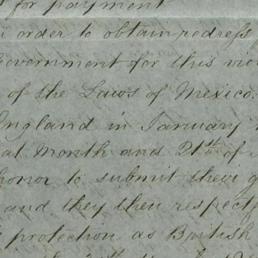 for payment
order to obtain redress
Government for this vio
of the Laws of Mexico.
England in January
at Month and 21st of
honor to submit their g
and they then respect
protection as British